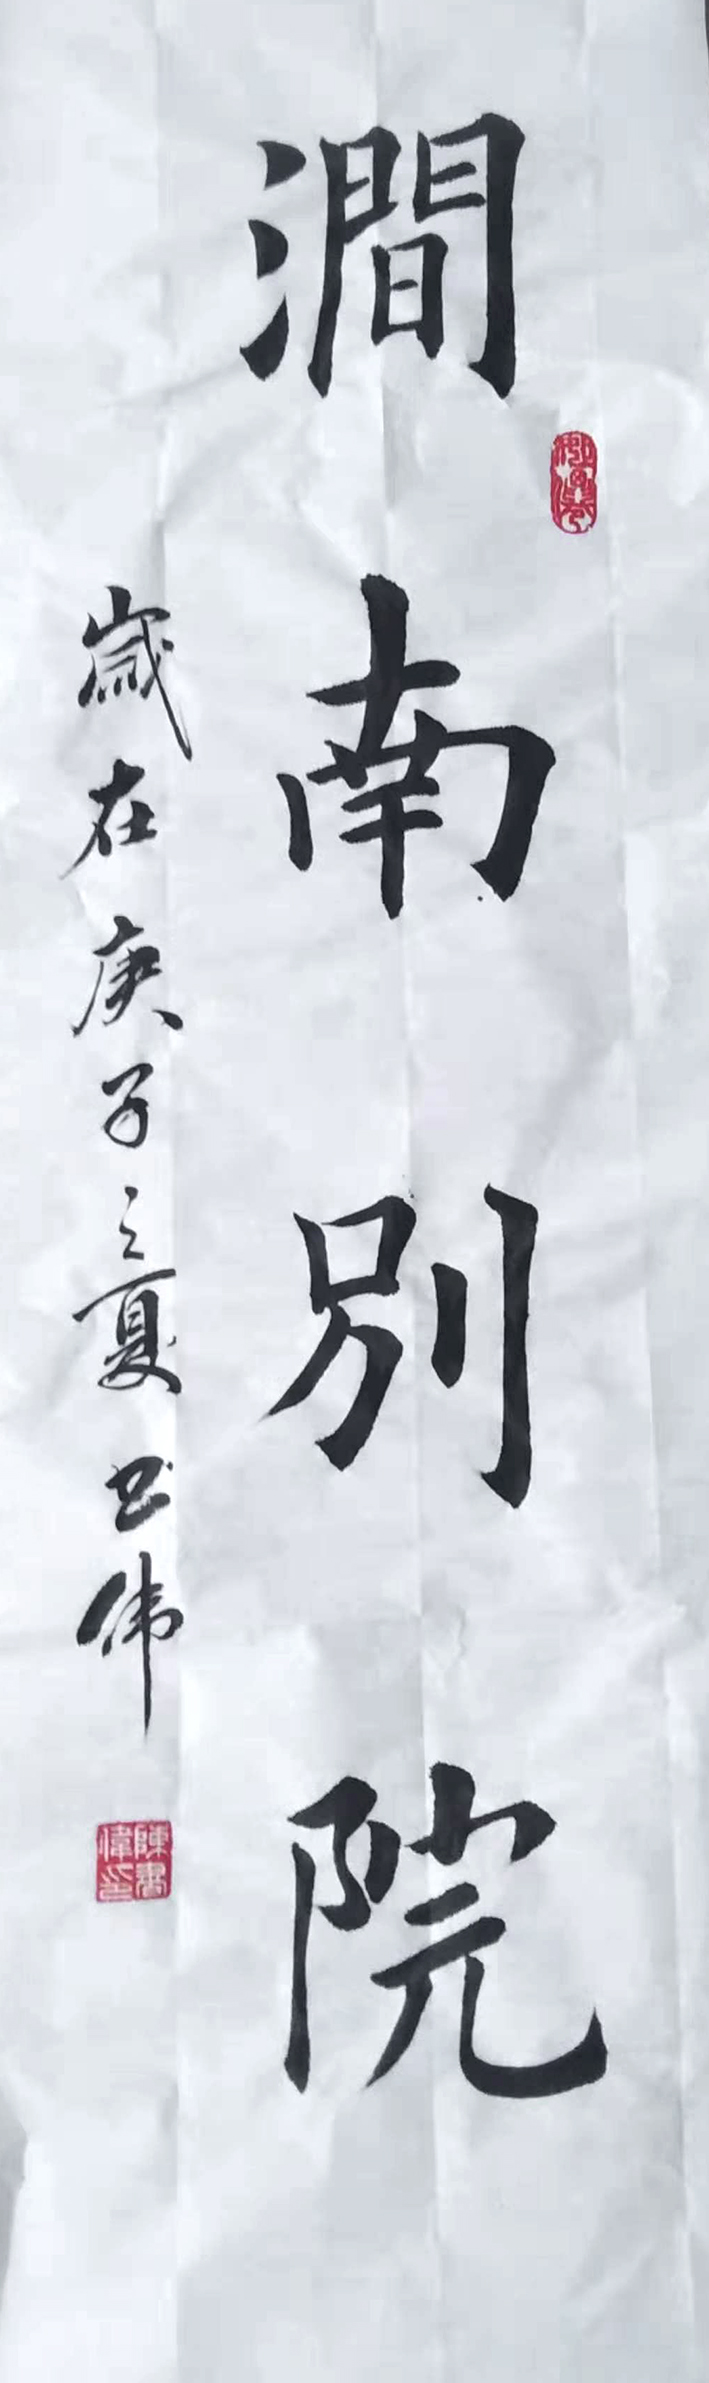 澗南別院
歲在庚子之夏书伟
陳書偉印